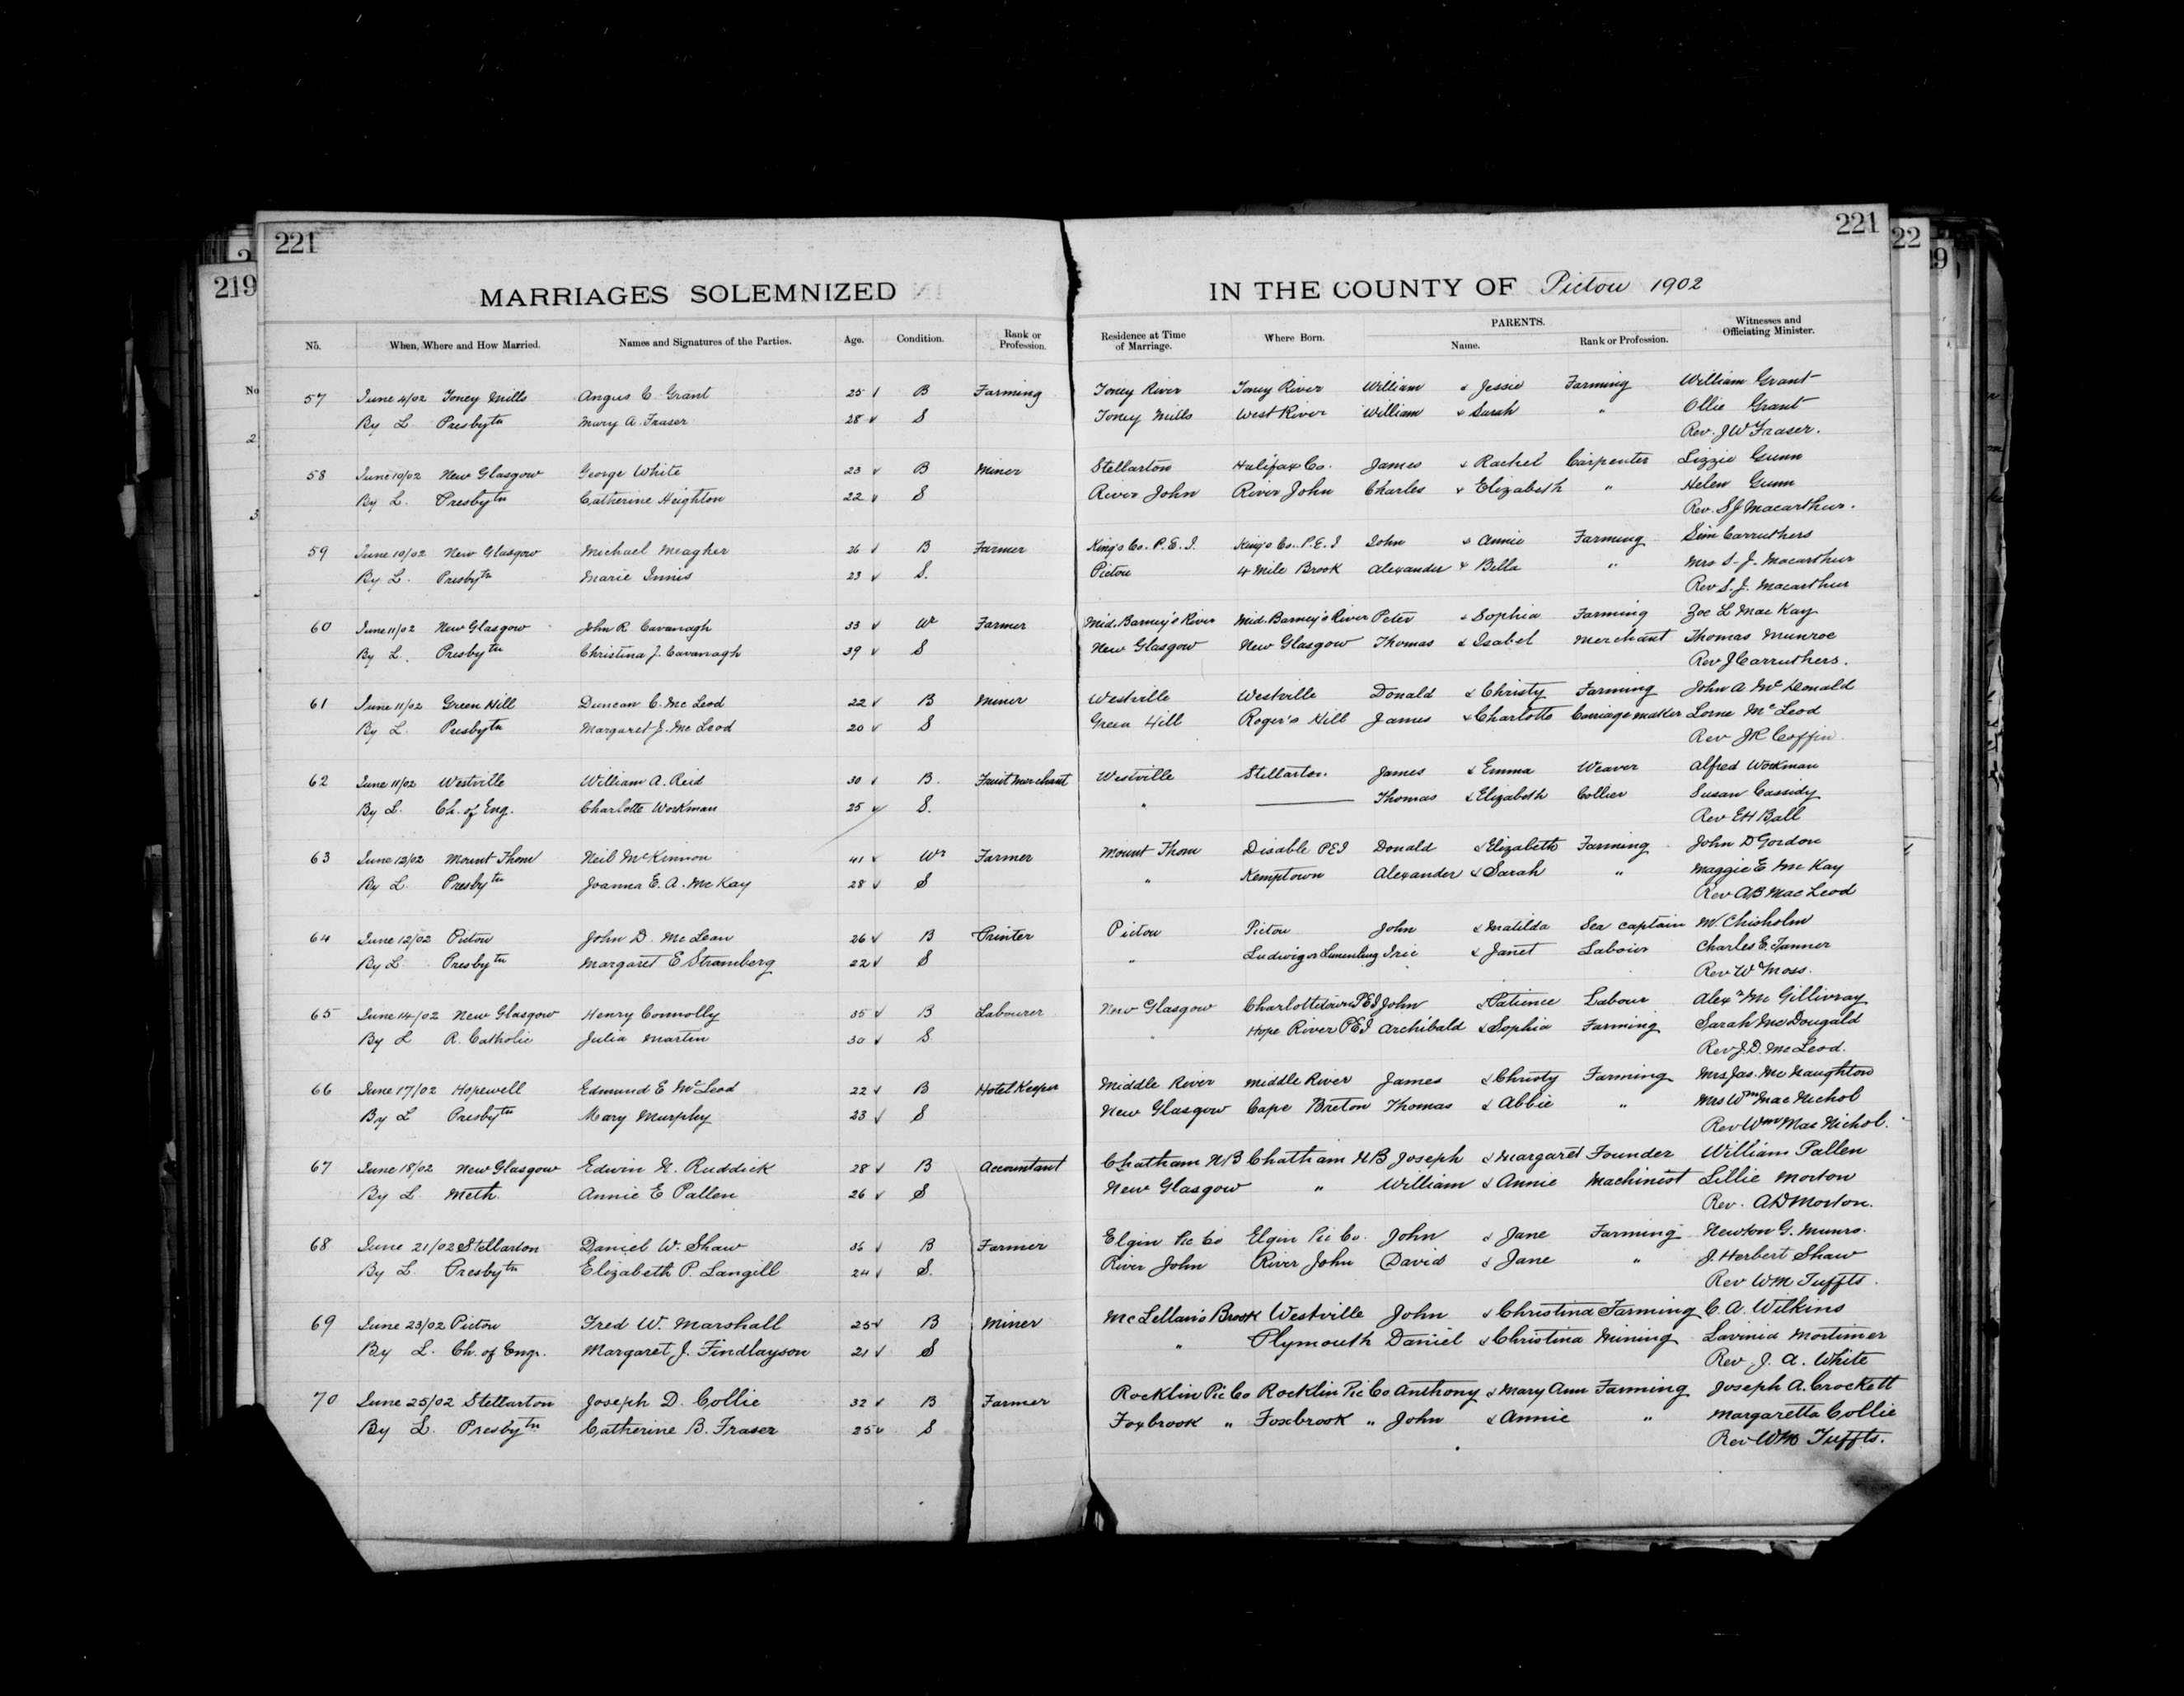 221 221 22
219 29
MARRIAGES SOLEMNIZED IN THE COUNTY OF Pictou 1902
No. When, Where and How Married. Names and Signatures of the Parties. Age. Condition. Rank or Profession. Residence at Time of Marriage. Where Born. PARENTS. Name. Rank or Profession. Witnesses and Officiating Minister.
57 June 4/02 Toney Mills Angus C. Grant 25 B Farming Toney River Toney River William & Jessie Farming William Grant
By L. Presbytn Mary A. Fraser 28 S Toney Mills West River William & Sarah " Ollie Grant
Rev. J W Fraser.
58 June 10/02 New Glasgow George White 23 B Miner Stellarton Halifax Co. James & Rachel Carpenter Lizzie Gunn
By L. Presbytn Catherine Heighton 22 S River John River John Charles & Elizabeth " Helen Gunn
Rev. S J Macarthur.
59 June 10/02 New Glasgow Michael Meagher 26 B Farmer King's Co. P.E.I. King's Co. P.E.I John & Annie Farming Sim Carruthers
By L. Presbytn Marie Innis 23 S. Pictou 4 Mile Brook Alexander & Bella " Mrs S. J. Macarthur
Rev S. J. Macarthur
60 June 11/02 New Glasgow John R Cavanagh 33 Wr Farmer Mid. Barney's River Mid. Barney's River Peter & Sophia Farming Zoe L MacKay
By L. Presbytn Christina J. Cavanagh 39 S New Glasgow New Glasgow Thomas & Isabel Merchant Thomas Munroe
Rev J Carruthers.
61 June 11/02 Green Hill Duncan C. McLeod 22 B Miner Westville Westville Donald & Christy Farming John A McDonald
By L. Presbytn Margaret J. McLeod 20 S Green Hill Roger's Hill James & Charlotte Carriage maker Lorne McLeod
Rev J R Coffin
62 June 11/02 Westville William A. Reid 30 B. Fruit merchant Westville Stellarton James & Emma Weaver Alfred Workman
By L. Ch. of Eng. Charlotte Workman 25 S. " — Thomas & Elizabeth Collier Susan Cassidy
Rev E H Ball
63 June 12/02 Mount Thom Neil McKinnon 41 Wr Farmer Mount Thom Disable PEI Donald & Elizabeth Farming John D Gordon
By L. Presbytn Joanna E. A. McKay 28 S " Kemptown Alexander & Sarah " Maggie E McKay
Rev A B MacLeod
64 June 12/02 Pictou John D. McLean 26 B Printer Pictou Pictou John & Matilda Sea captain M. Chisholm
By L Presbytn Margaret E Stramberg 22 S " Ludwig or Lunenburg Iric & Janet Labour Charles E. Tanner
Rev W Moss.
65 June 14/02 New Glasgow Henry Connolly 35 B Labourer New Glasgow Charlottetown PEI John & Patience Labour Alexr McGillivray
By L R. Catholic Julia Martin 30 S " Hope River PEI Archibald & Sophia Farming Sarah McDougald
Rev J. D. McLeod.
66 June 17/02 Hopewell Edmund E McLeod 22 B Hotel Keeper Middle River Middle River James & Christy Farming Mrs Jas. McNaughton
By L Presbytn Mary Murphy 23 S New Glasgow Cape Breton Thomas & Abbie " Mrs Wm MacNichol
Rev Wm MacNichol.
67 June 18/02 New Glasgow Edwin N. Ruddick 28 B Accountant Chatham N B Chatham N B Joseph & Margaret Founder William Pallen
By L. Meth. Annie E Pallen 26 S New Glasgow " William & Annie Machinist Lillie Morton
Rev. A D Morton.
68 June 21/02 Stellarton Daniel W. Shaw 36 B Farmer Elgin Pic Co Elgin Pic Co. John & Jane Farming Newton G. Munro.
By L. Presbytn Elizabeth P. Langill 24 S. River John River John David & Jane " J. Herbert Shaw
Rev W M Tuffts.
69 June 23/02 Pictou Fred W. Marshall 25 B Miner McLellan's Brook Westville John & Christina Farming C. A. Wilkins
By L. Ch. of Eng. Margaret J. Findlayson 21 S " Plymouth Daniel & Christina Mining Lavinia Mortimer
Rev. J. A. White
70 June 25/02 Stellarton Joseph D. Collie 32 B Farmer Rocklin Pic Co Rocklin Pic Co Anthony & Mary Ann Farming Joseph A. Crockett
By L. Presbytn Catherine B. Fraser 25 S Foxbrook " Foxbrook " John & Annie " Margaretta Collie
Rev W M Tuffts.